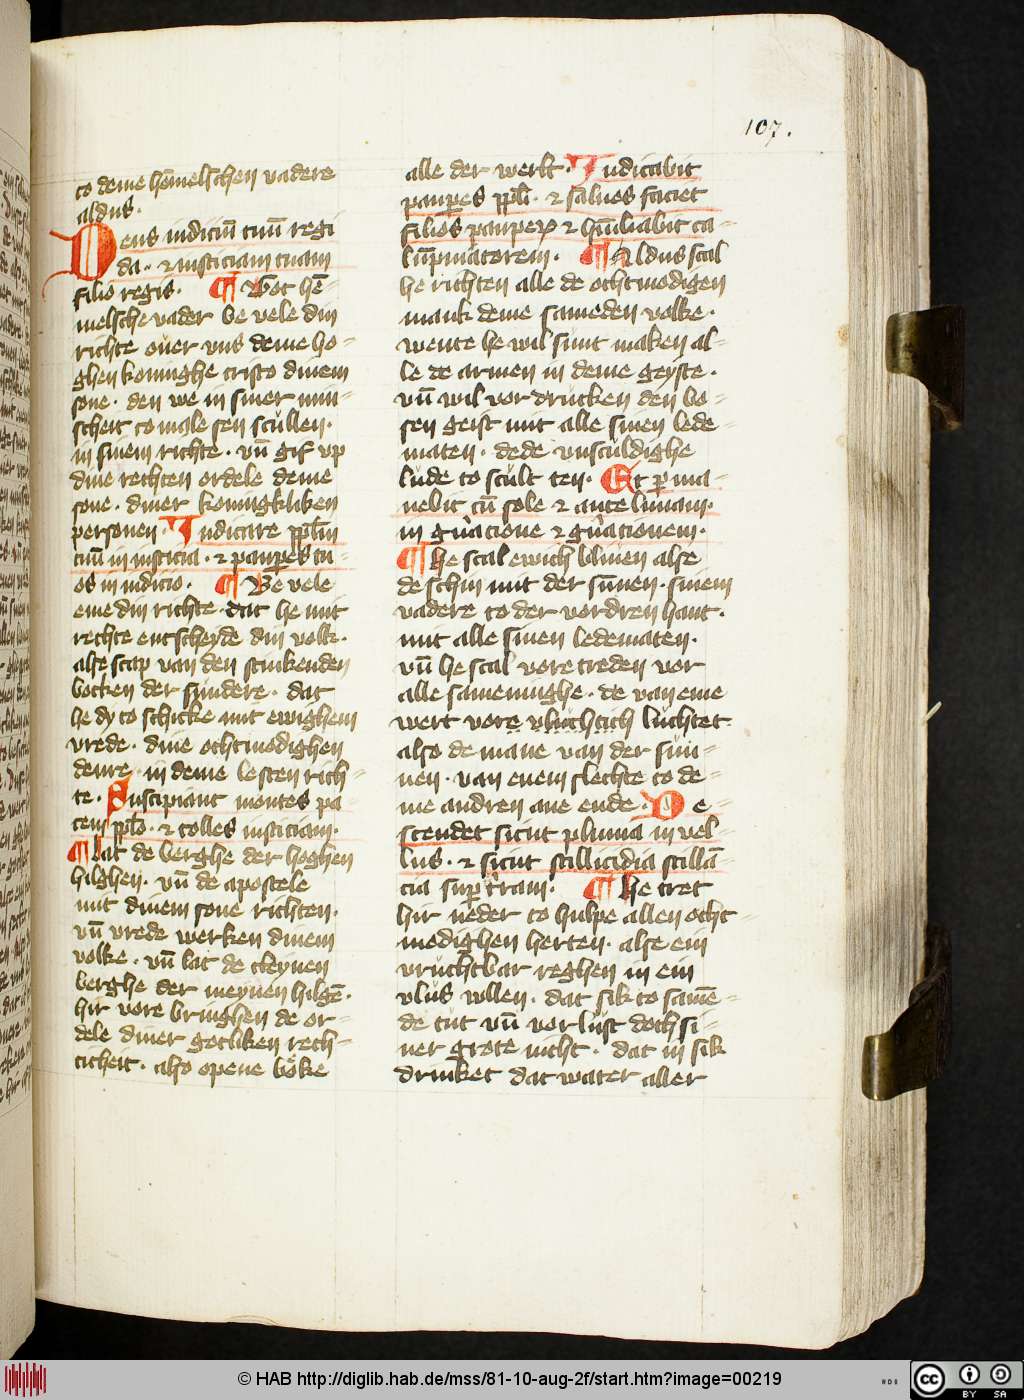 107.
to deme hēmelschen vadere
aldus.
Deus iudiciū tuū regi
da. ⁊ iusticiam tuam
filio regis. ¶ Got hē-
melsche vader be vele din
richte ouer vns deme ho-
ghen koninghe cristo dinem
sone. den we in siner min-
scheit to male sen scullen.
in sinem richte. vn̄ gif vp
dine rechten ordele deme
sone. diner koningkliken
personen. Iudicare pplm̄
tuū in iusticia. ⁊ pauꝑes tu-
os in iudicio. ¶ Be vele
eme din richte. dat he mit
rechte entscheyde din volk.
alse scap van den stinkenden
bocken der sundere. dat
he dy to schicke mit ewighem
vrede. dine othmodighen
denre. in deme lesten rich-
te. Suscipiant montes pa-
cem pplō. ⁊ colles iusticiam.
¶ Lat de berghe der hoghen
hilghen. vn̄ de apostele
mit dinem sone richten.
vn̄ vrede werken dinem
volke. vn̄ lat de cleynen
berghe der meynen hilgē.
hir vore bringhen de or-
dele diner gotliken rech-
ticheit. also opene böke
alle der werlt. Iudicabit
pauꝑes ppli. ⁊ saluos faciet
filios pauperꝝ ⁊ hūiliabit ca-
lūpniatorem. ¶ Aldus scal
he richten alle de othmodigen
mank deme sameden volke.
wente he wil sunt maken al-
le de armen in deme geyste.
vn̄ wil vor drucken den bo-
sen geist mit alle sinen lede-
maten. dede vnsculdighe
lude to scult ten. Et ꝑma-
nebit cū sole ⁊ ante lunam.
in gn̄acione ⁊ gn̄acionem.
¶ He scal ewich bliuen alse
de schin mit der sūnen. sinem
vadere to der vordren hant.
mit alle sinen ledematen.
vn̄ he scal vore treden vor
alle sameninghe. de van eme
wert vore vluchtich luchtet
also de mane van der sun-
nen. van enem slechte to de-
me andren ane ende. De-
scendet sicut pluuia in vel-
lus. ⁊ sicut stillicidia stillā-
cia suꝑ t̄ram. ¶ He tret
hir neder to hulpe allen otht-
modighen herten. alse ein
vruchtbar reghen in ein
vlus wllen. dat sik to samē-
de tut vn̄ vorlust doch si-
ner grote nicht. dat in sik
drinket dat water aller
© HAB http://diglib.hab.de/mss/81-10-aug-2f/start.htm?image=00219
HAB
cc BY SA